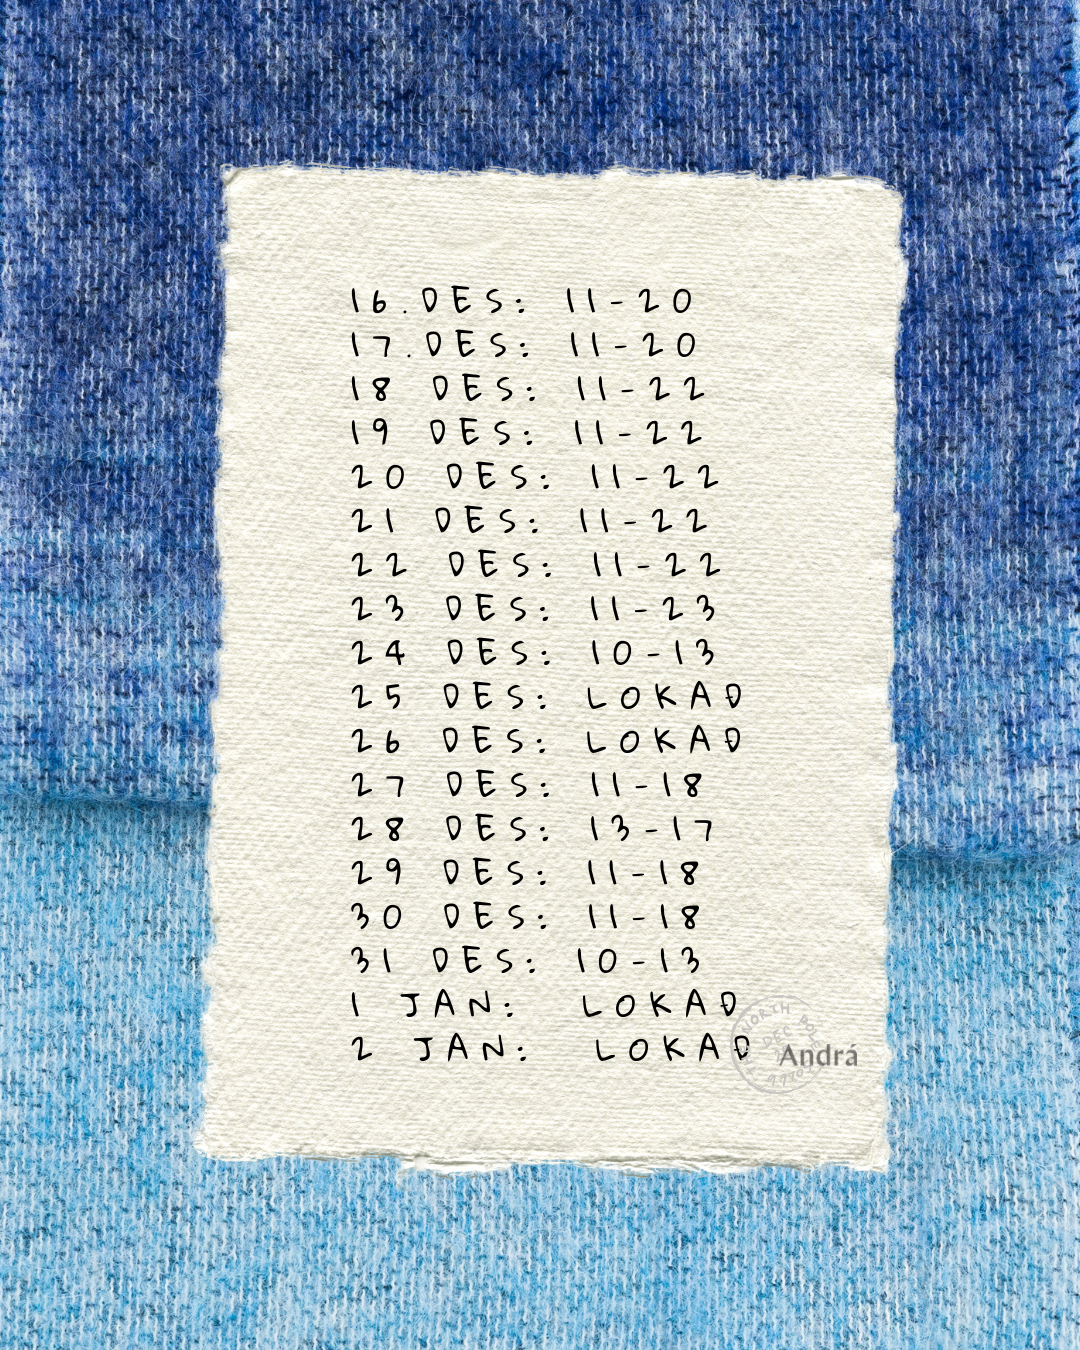 16.DES: 11-20
17.DES: 11-20
18 DES: 11-22
19 DES: 11-22
20 DES: 11-22
21 DES: 11-22
22 DES: 11-22
23 DES: 11-23
24 DES: 10-13
25 DES: LOKAÐ
26 DES: LOKAÐ
27 DES: 11-18
28 DES: 13-17
29 DES: 11-18
30 DES: 11-18
31 DES: 10-13
1 JAN: LOKAÐ
2 JAN: LOKAÐ
NORTH POLE
DEC
Andrá